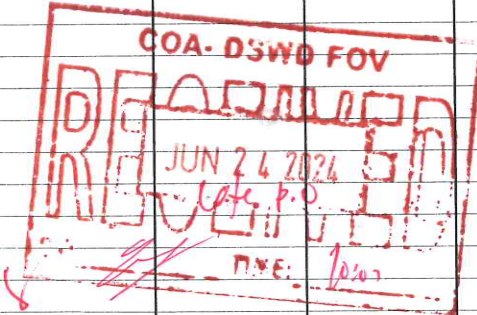 COA- DSWD FOV
RECEIVED
JUN 24 2024
Late P.O
TIME: 10:07